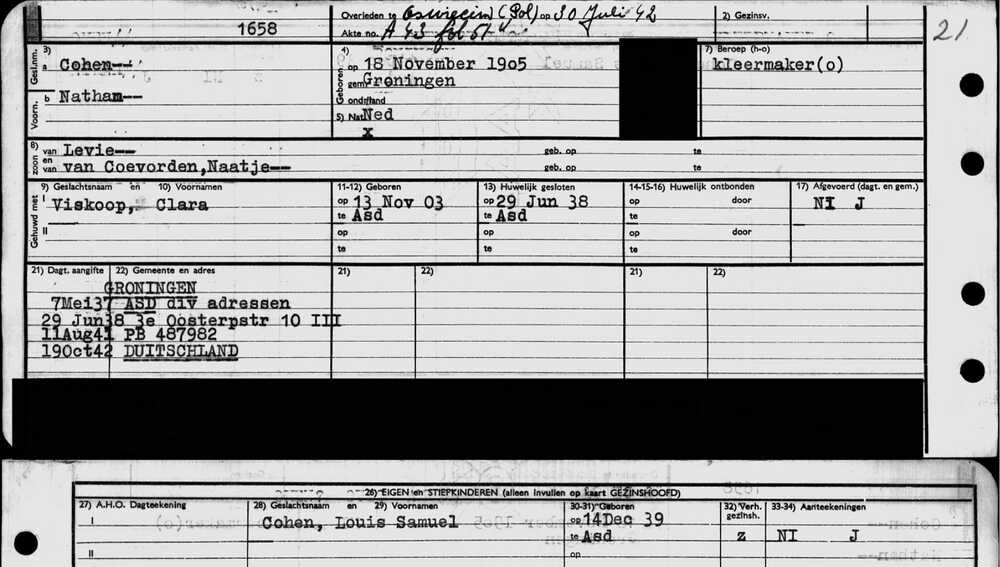 1658
Overleden te Oswiecim (Pol) op 30 Juli 42
Akte no. A 43 fol 51
2) Gezinsv.
21
Gesl.nm. 3) a Cohen--
Voorn. b Nathan--
4) Geboren op 18 November 1905
gem Groningen
ond/land
5) Nat Ned
x
7) Beroep (h-o)
kleermaker(o)
8) zoon van Levie-- geb. op te
en van van Coevorden,Naatje-- geb. op te
Gehuwd met 9) Geslachtsnaam en 10) Voornamen 11-12) Geboren 13) Huwelijk gesloten 14-15-16) Huwelijk ontbonden 17) Afgevoerd (dagt. en gem.)
I Viskoop, Clara op 13 Nov 03 op 29 Jun 38 op door NI J
te Asd te Asd te
II op op op door
te te te
21) Dagt. aangifte 22) Gemeente en adres 21) 22) 21) 22)
GRONINGEN
7Mei37 ASD div adressen
29 Jun38 3e Oosterpstr 10 III
11Aug41 PB 487982
19Oct42 DUITSCHLAND
26) EIGEN en STIEFKINDEREN (alleen invullen op kaart GEZINSHOOFD)
27) A.H.O. Dagteekening 28) Geslachtsnaam en 29) Voornamen 30-31) Geboren 32) Verh. gezinsh. 33-34) Aanteekeningen
I Cohen, Louis Samuel op 14Dec 39
te Asd z NI J
II op